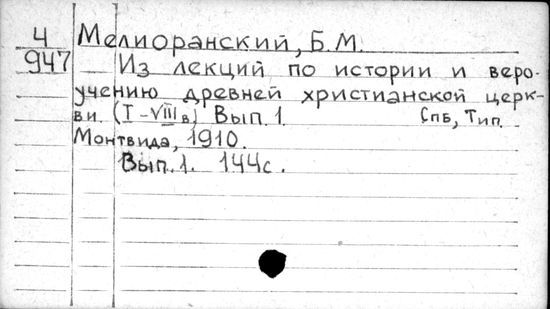 4 Мелиоранский, Б.М.
947 Из лекций по истории и веро-
учению древней христианской церк-
ви. (I-VIII в) Вып. 1. Спб, Тип.
Монтвида, 1910.
Вып. 1. 144с.